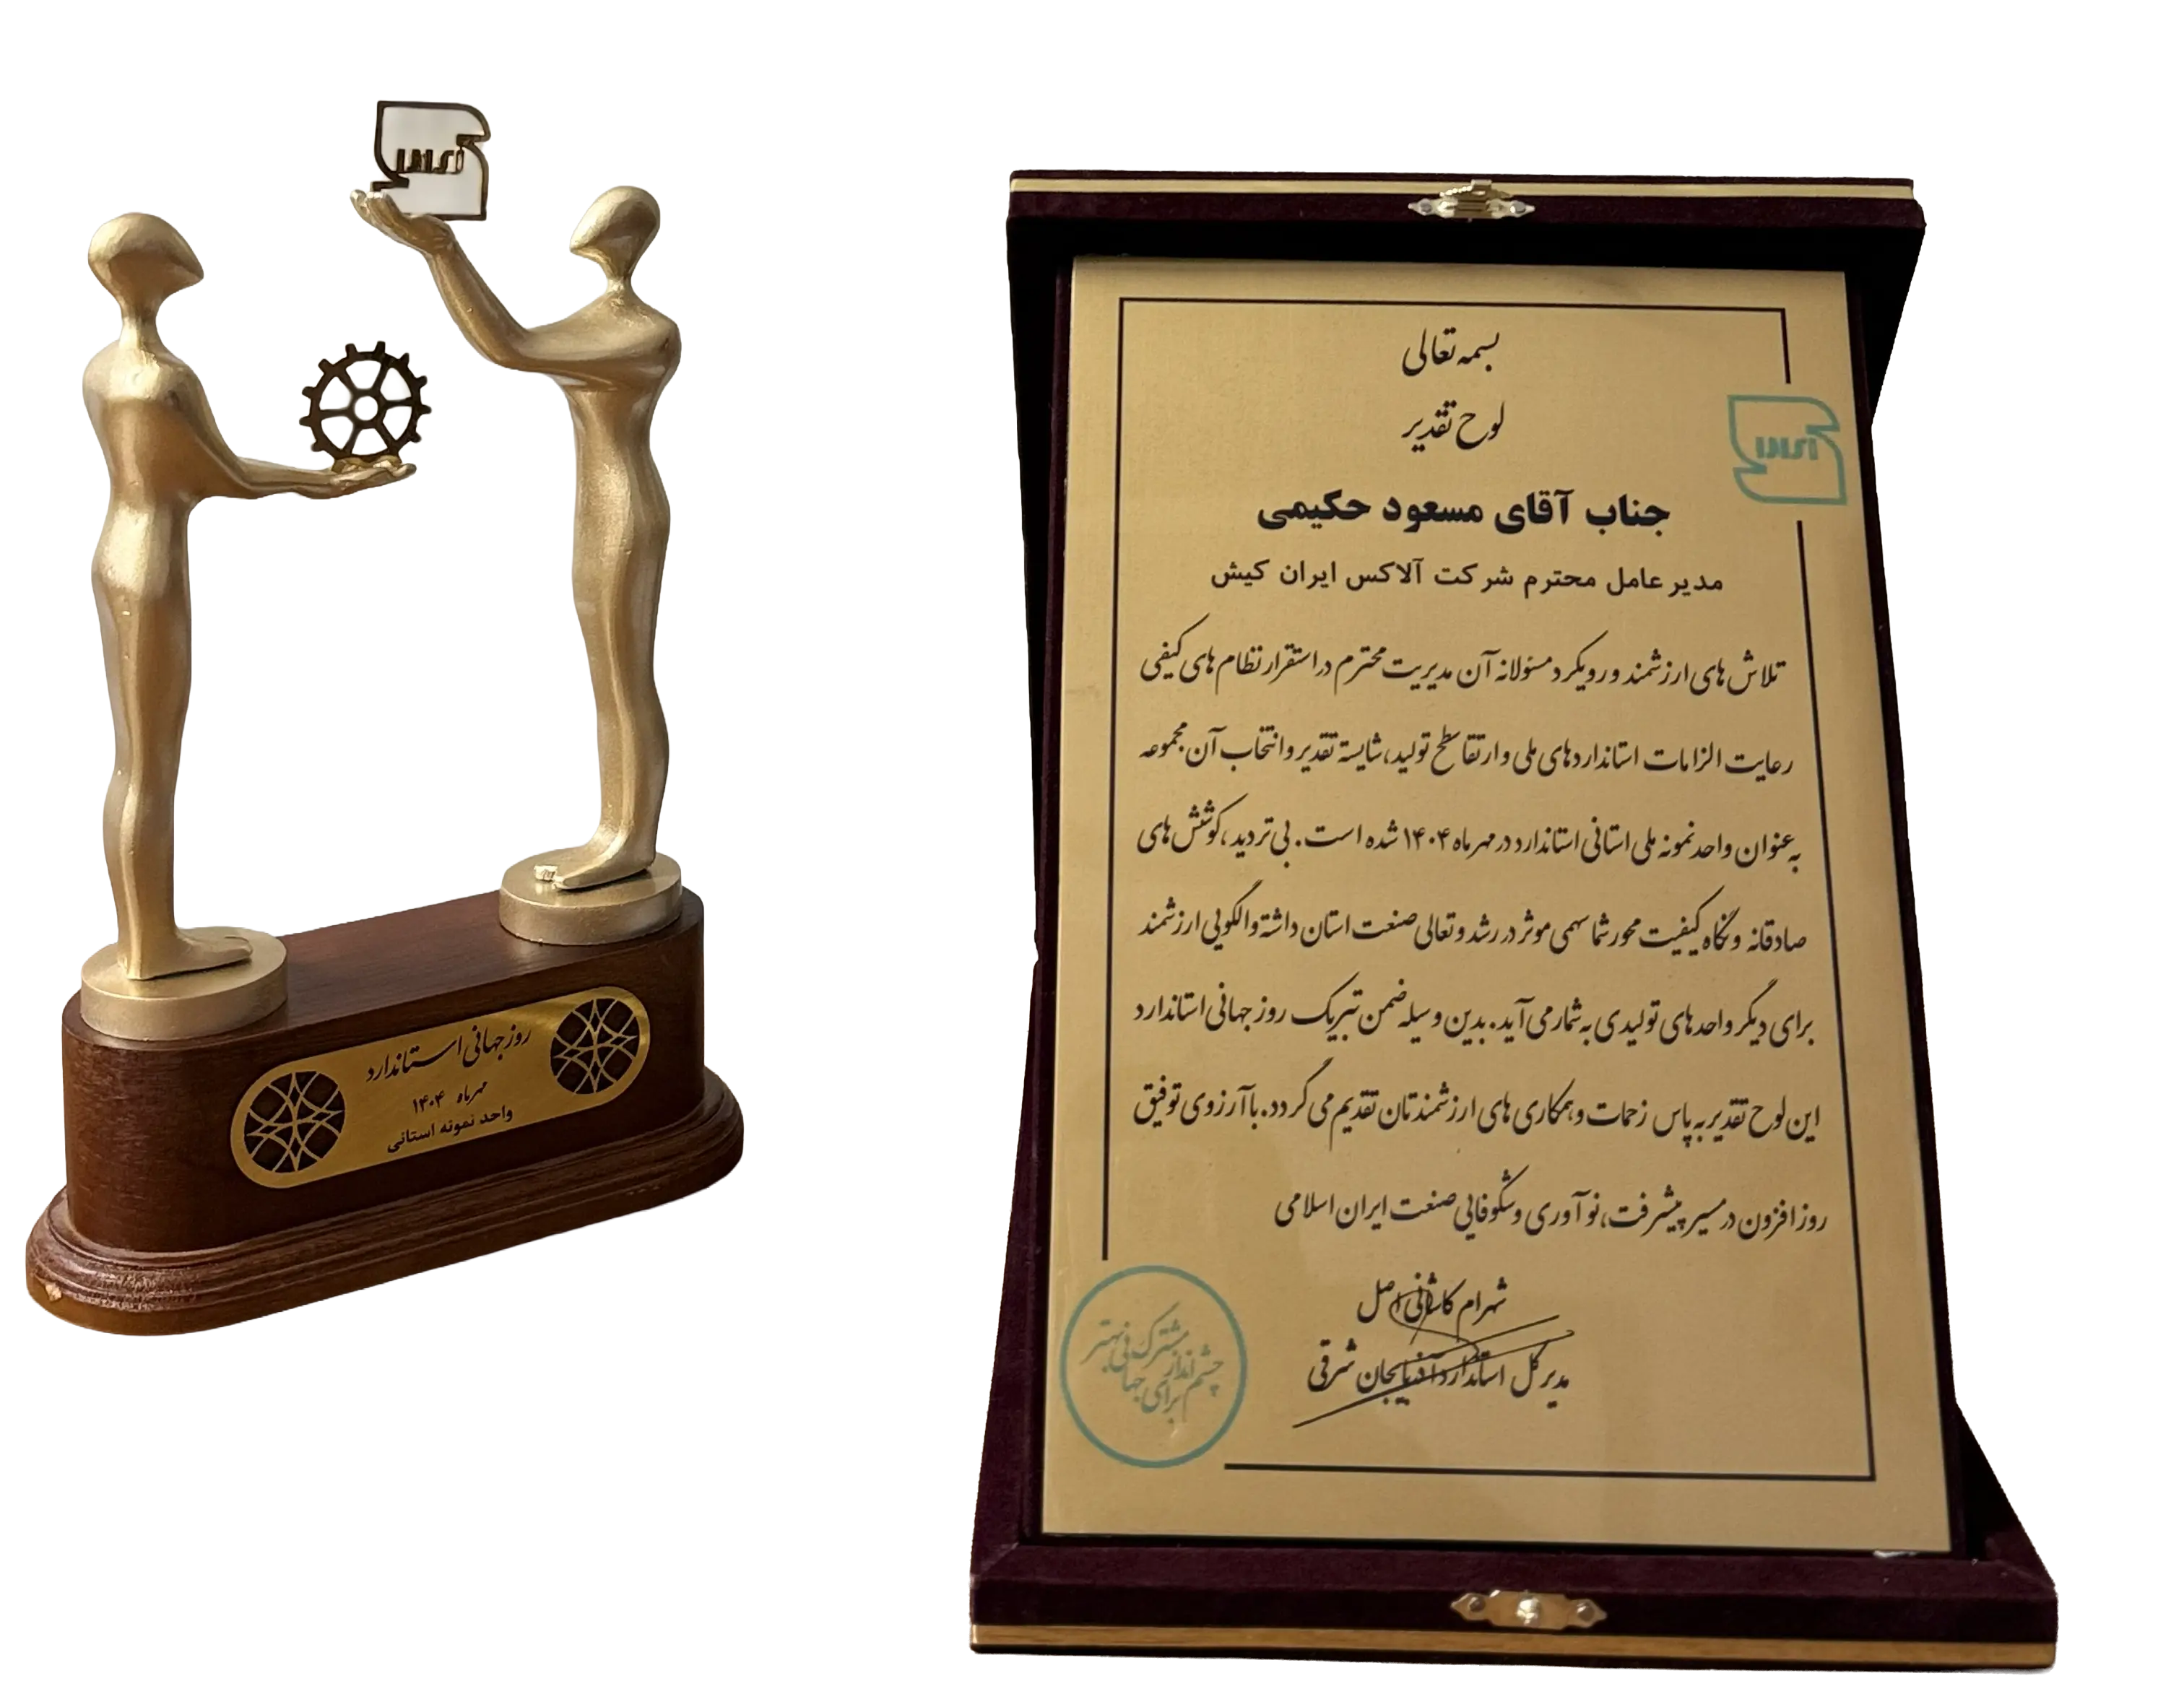 روز جهانی استاندارد
مهرماه ۱۴۰۴
واحد نمونه استانی
بسمه تعالی
لوح تقدیر
جناب آقای مسعود حکیمی
مدیر عامل محترم شرکت آلاکس ایران کیش
تلاش های ارزشمند و رویکرد مسئولانه آن مدیریت محترم در استقرار نظام های کیفی
رعایت الزامات استانداردهای ملی و ارتقا سطح تولید، شایسته تقدیر و انتخاب آن مجموعه
به عنوان واحد نمونه ملی استانی استاندارد در مهرماه ۱۴۰۴ شده است. بی تردید، کوشش های
صادقانه و نگاه کیفیت محور شما سهمی موثر در رشد و تعالی صنعت استان داشته و الگویی ارزشمند
برای دیگر واحدهای تولیدی به شمار می آید. بدین وسیله ضمن تبریک روز جهانی استاندارد
این لوح تقدیر به پاس زحمات و همکاری های ارزشمندتان تقدیم می گردد. با آرزوی توفیق
روزافزون در مسیر پیشرفت، نوآوری و شکوفایی صنعت ایران اسلامی
شهرام کاشانی اصل
مدیر کل استاندارد آذربایجان شرقی
چشم انداز مشترک
برای جهانی بهتر